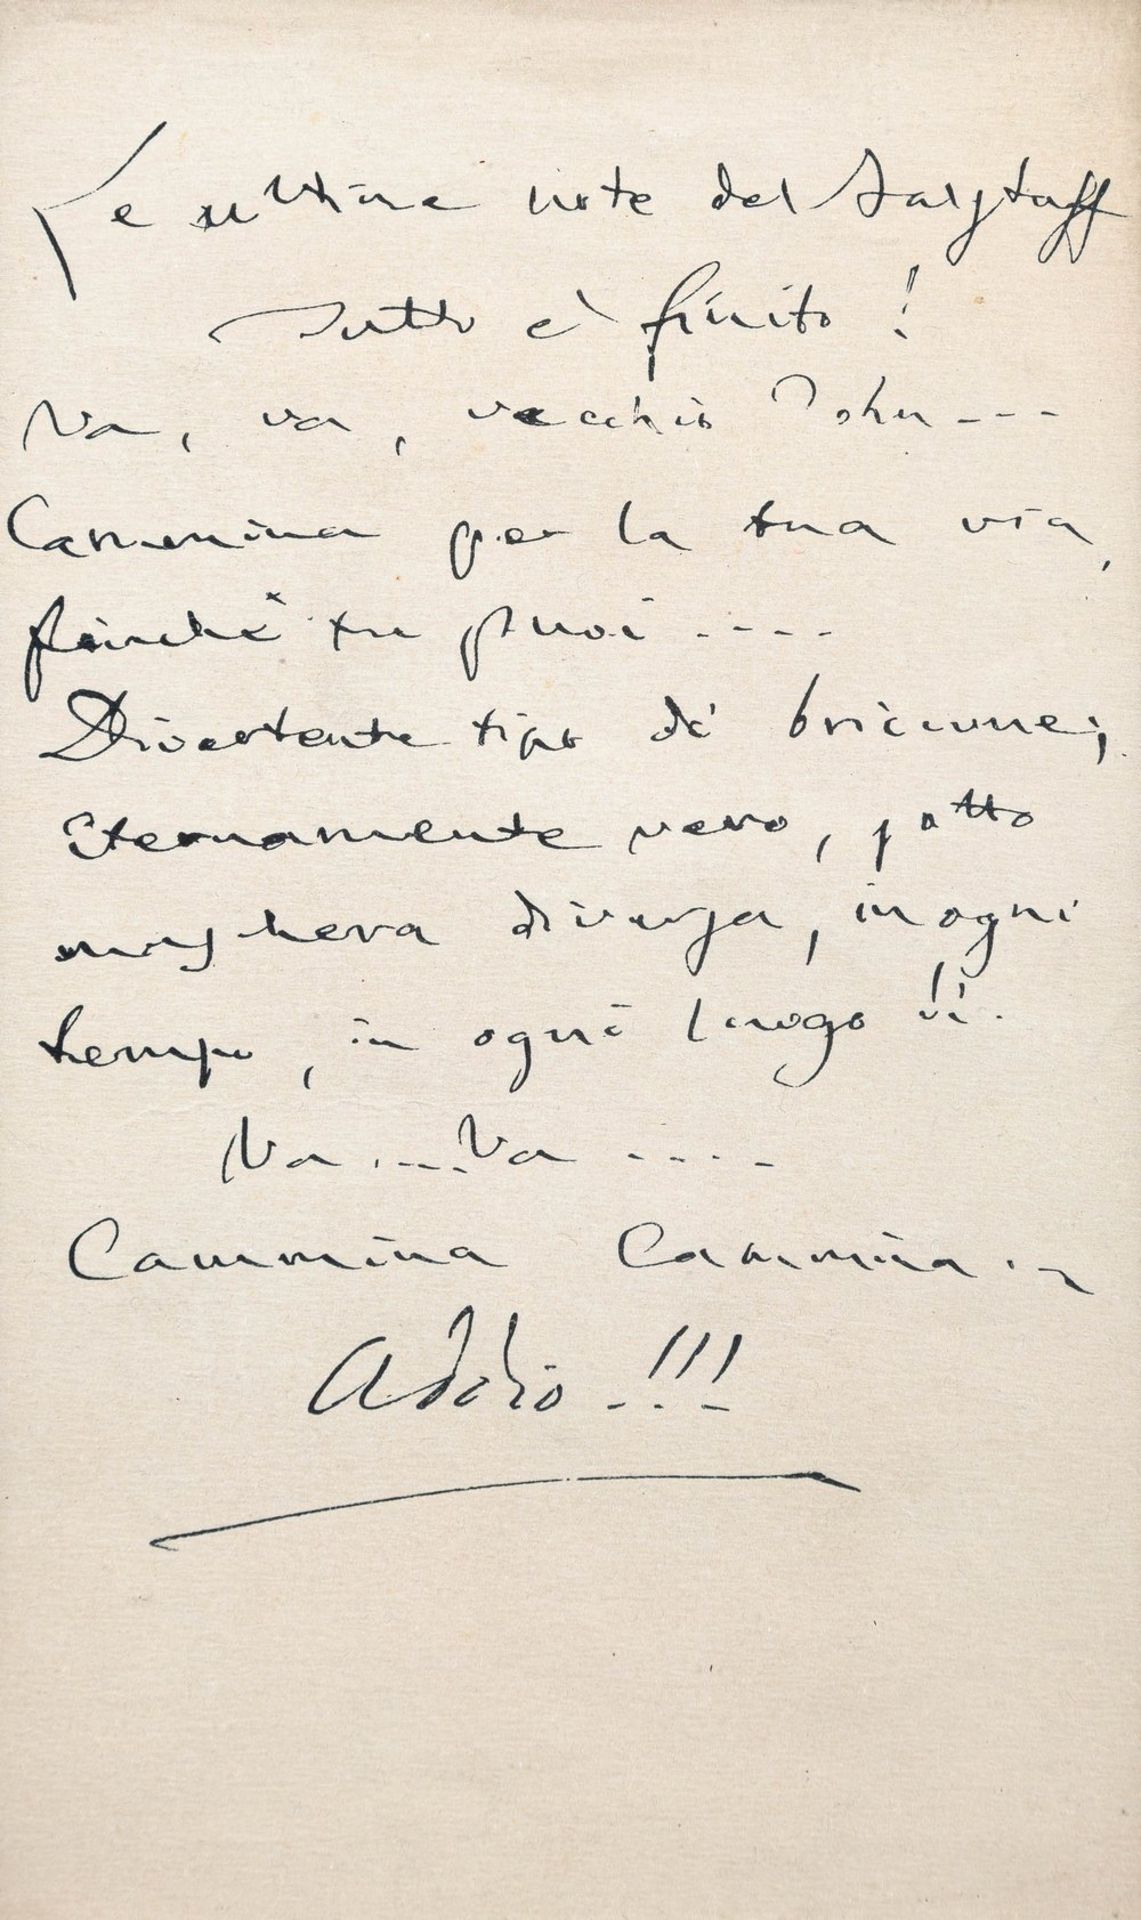 Le ultime note del Falstaff
Tutto è finito!
Va, va, vecchio John---
Cammina per la tua via,
finchè tu puoi ----
Divertente tipo di briccone;
Eternamente vero, sotto
maschera diversa, in ogni
tempo, in ogni luogo
Va ....Va ----
Cammina Cammina..
Addio .!!!